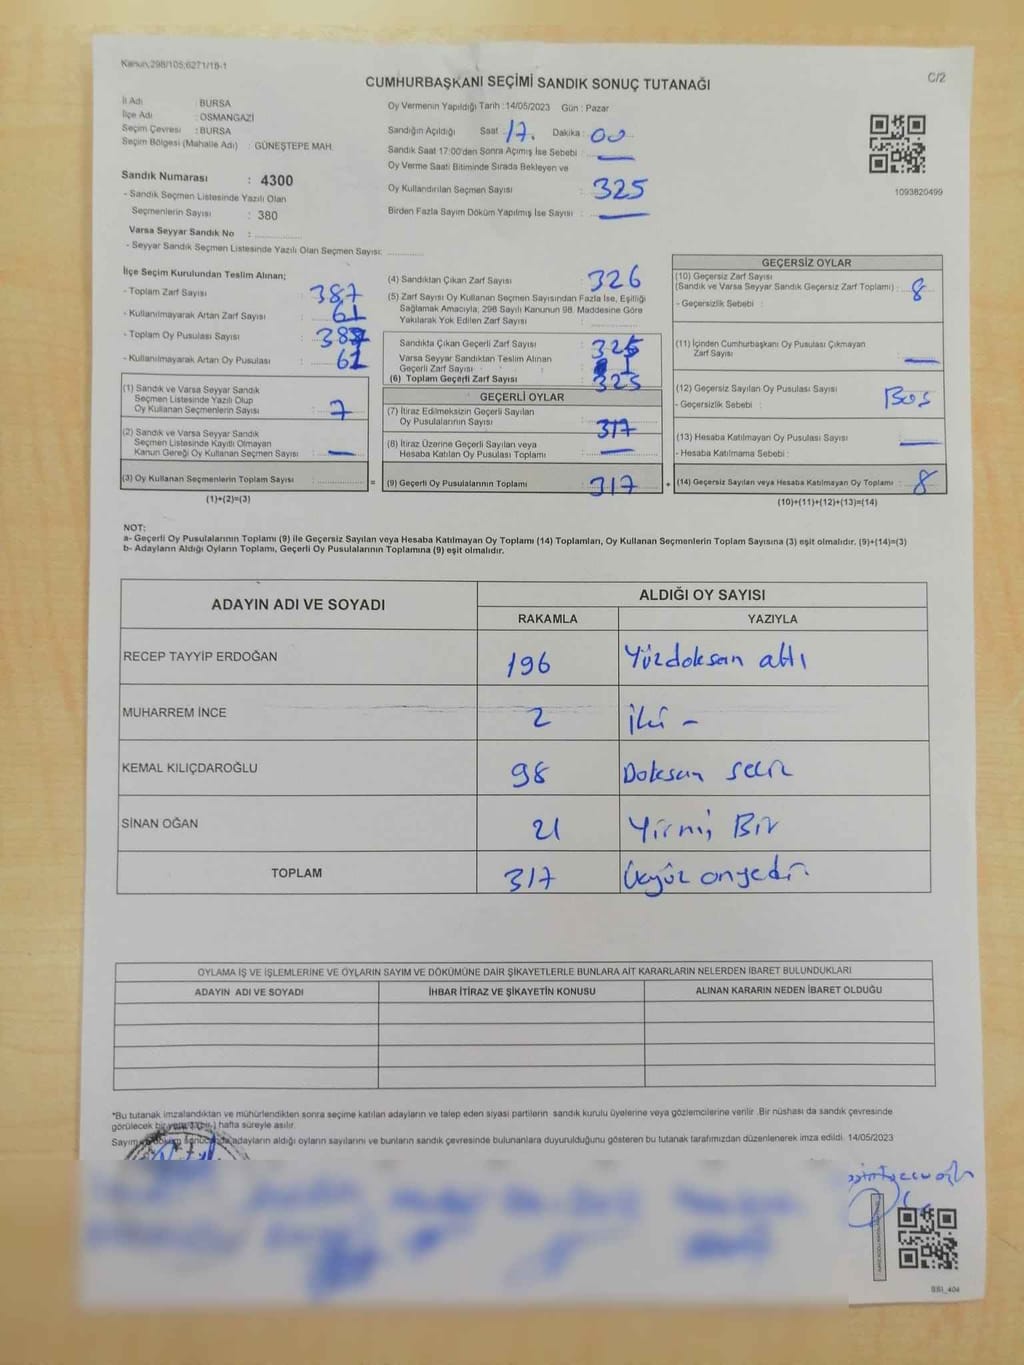 Kanun;298/105;6271/18-1
C/2
CUMHURBAŞKANI SEÇİMİ SANDIK SONUÇ TUTANAĞI
İl Adı : BURSA
İlçe Adı : OSMANGAZİ
Seçim Çevresi : BURSA
Seçim Bölgesi (Mahalle Adı) : GÜNEŞTEPE MAH.
Sandık Numarası : 4300
- Sandık Seçmen Listesinde Yazılı Olan
Seçmenlerin Sayısı : 380
Varsa Seyyar Sandık No :
- Seyyar Sandık Seçmen Listesinde Yazılı Olan Seçmen Sayısı:
Oy Vermenin Yapıldığı Tarih :14/05/2023 Gün : Pazar
Sandığın Açıldığı Saat : 17. Dakika : 00
Sandık Saat 17:00'den Sonra Açımış İse Sebebi : —
Oy Verme Saati Bitiminde Sırada Bekleyen ve
Oy Kullandırılan Seçmen Sayısı : 325
Birden Fazla Sayım Döküm Yapılmış İse Sayısı : —
1093820499
İlçe Seçim Kurulundan Teslim Alınan;
- Toplam Zarf Sayısı : 387
- Kullanılmayarak Artan Zarf Sayısı : 61
- Toplam Oy Pusulası Sayısı : 387
- Kullanılmayarak Artan Oy Pusulası : 61
(1) Sandık ve Varsa Seyyar Sandık
Seçmen Listesinde Yazılı Olup
Oy Kullanan Seçmenlerin Sayısı : 7
(2) Sandık ve Varsa Seyyar Sandık
Seçmen Listesinde Kayıtlı Olmayan
Kanun Gereği Oy Kullanan Seçmen Sayısı : —
(3) Oy Kullanan Seçmenlerin Toplam Sayısı : =
(1)+(2)=(3)
(4) Sandıktan Çıkan Zarf Sayısı : 326
(5) Zarf Sayısı Oy Kullanan Seçmen Sayısından Fazla İse, Eşitliği
Sağlamak Amacıyla, 298 Sayılı Kanunun 98. Maddesine Göre
Yakılarak Yok Edilen Zarf Sayısı :
Sandıkta Çıkan Geçerli Zarf Sayısı : 325
Varsa Seyyar Sandıktan Teslim Alınan
Geçerli Zarf Sayısı :
(6) Toplam Geçerli Zarf Sayısı : 325
GEÇERLİ OYLAR
(7) İtiraz Edilmeksizin Geçerli Sayılan
Oy Pusulalarının Sayısı : 317
(8) İtiraz Üzerine Geçerli Sayılan veya
Hesaba Katılan Oy Pusulası Toplamı : —
(9) Geçerli Oy Pusulalarının Toplamı : 317 +
GEÇERSİZ OYLAR
(10) Geçersiz Zarf Sayısı
(Sandık ve Varsa Seyyar Sandık Geçersiz Zarf Toplamı) : 8
- Geçersizlik Sebebi :
(11) İçinden Cumhurbaşkanı Oy Pusulası Çıkmayan
Zarf Sayısı : —
(12) Geçersiz Sayılan Oy Pusulası Sayısı : Boş
- Geçersizlik Sebebi :
(13) Hesaba Katılmayan Oy Pusulası Sayısı : —
- Hesaba Katılmama Sebebi :
(14) Geçersiz Sayılan veya Hesaba Katılmayan Oy Toplamı : 8
(10)+(11)+(12)+(13)=(14)
NOT:
a- Geçerli Oy Pusulalarının Toplamı (9) ile Geçersiz Sayılan veya Hesaba Katılmayan Oy Toplamı (14) Toplamları, Oy Kullanan Seçmenlerin Toplam Sayısına (3) eşit olmalıdır. (9)+(14)=(3)
b- Adayların Aldığı Oyların Toplamı, Geçerli Oy Pusulalarının Toplamına (9) eşit olmalıdır.
ADAYIN ADI VE SOYADI ALDIĞI OY SAYISI
RAKAMLA YAZIYLA
RECEP TAYYİP ERDOĞAN 196 Yüzdoksan altı
MUHARREM İNCE 2 İki -
KEMAL KILIÇDAROĞLU 98 Doksan sekiz
SİNAN OĞAN 21 Yirmi Bir
TOPLAM 317 Üçyüz onyedi.
OYLAMA İŞ VE İŞLEMLERİNE VE OYLARIN SAYIM VE DÖKÜMÜNE DAİR ŞİKAYETLERLE BUNLARA AİT KARARLARIN NELERDEN İBARET BULUNDUKLARI
ADAYIN ADI VE SOYADI İHBAR İTİRAZ VE ŞİKAYETİN KONUSU ALINAN KARARIN NEDEN İBARET OLDUĞU
*Bu tutanak imzalandıktan ve mühürlendikten sonra seçime katılan adayların ve talep eden siyasi partilerin sandık kurulu üyelerine veya gözlemcilerine verilir .Bir nüshası da sandık çevresinde
görülecek bir yere (bir) hafta süreyle asılır.
Sayım ve döküm sonucunda adayların aldığı oyların sayılarını ve bunların sandık çevresinde bulunanlara duyurulduğunu gösteren bu tutanak tarafımızdan düzenlenerek imza edildi. 14/05/2023
BSI_404